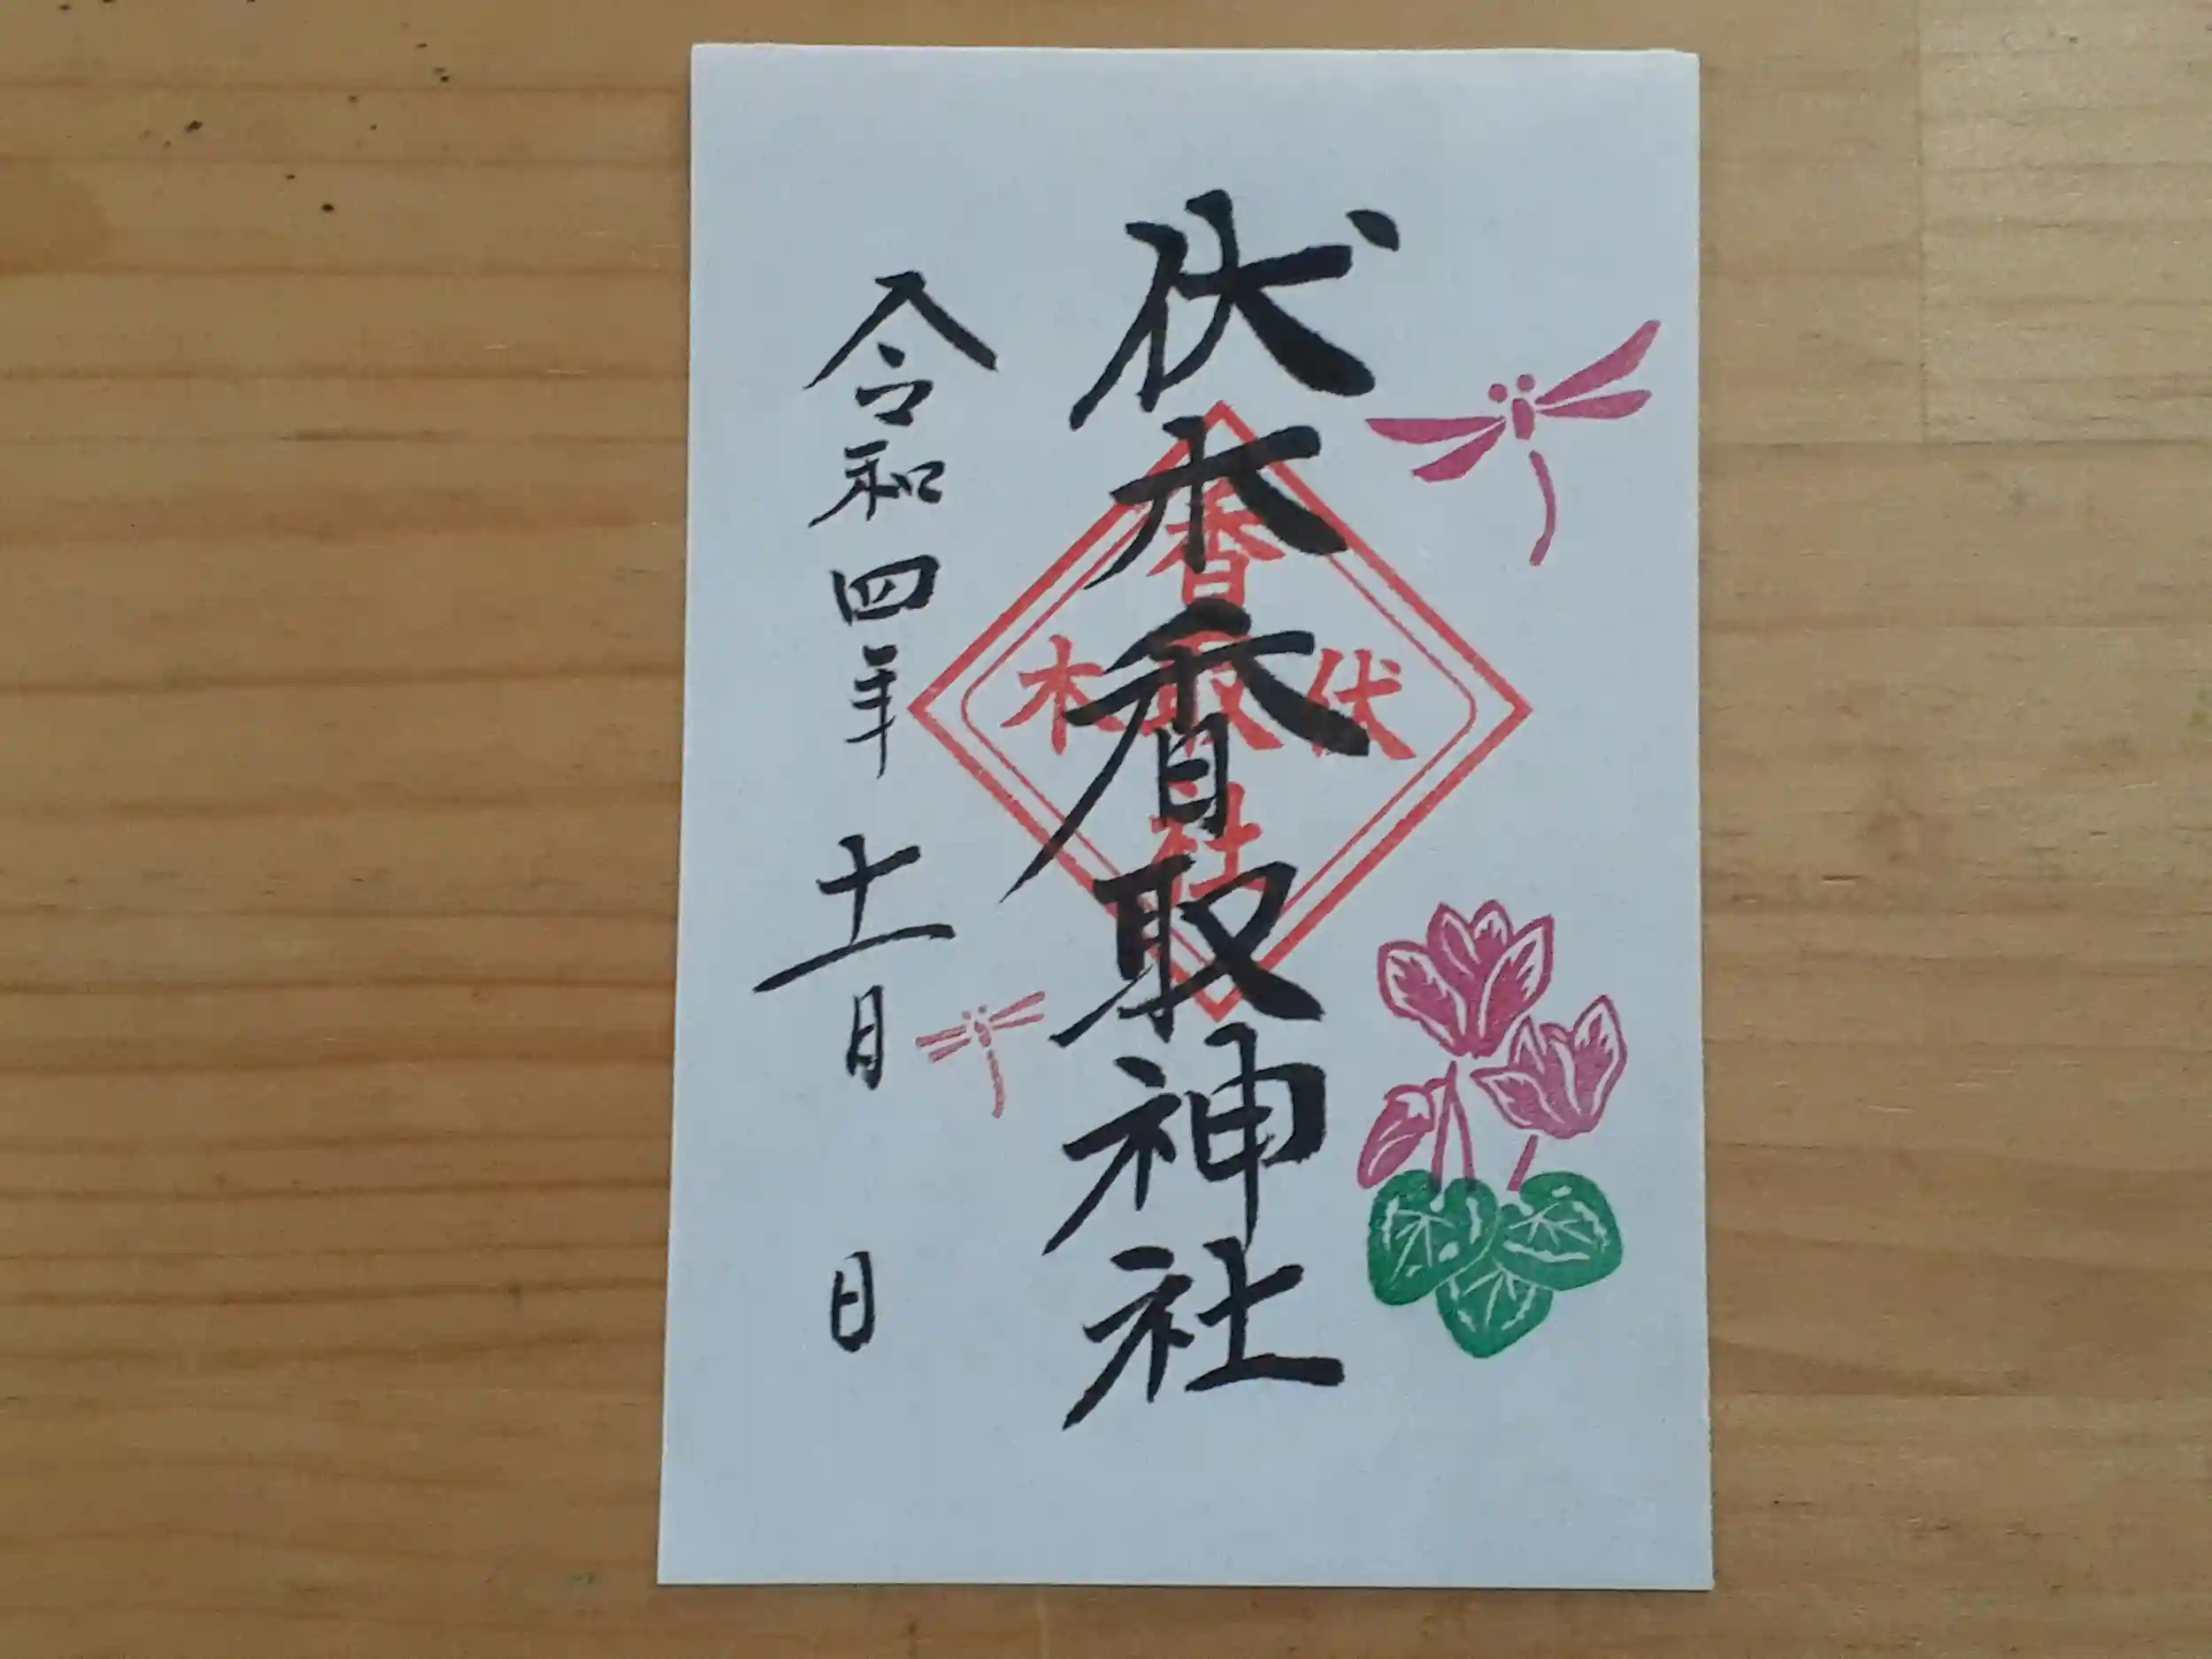 伏木香取神社
香取社
伏木
令和四年十一月 日